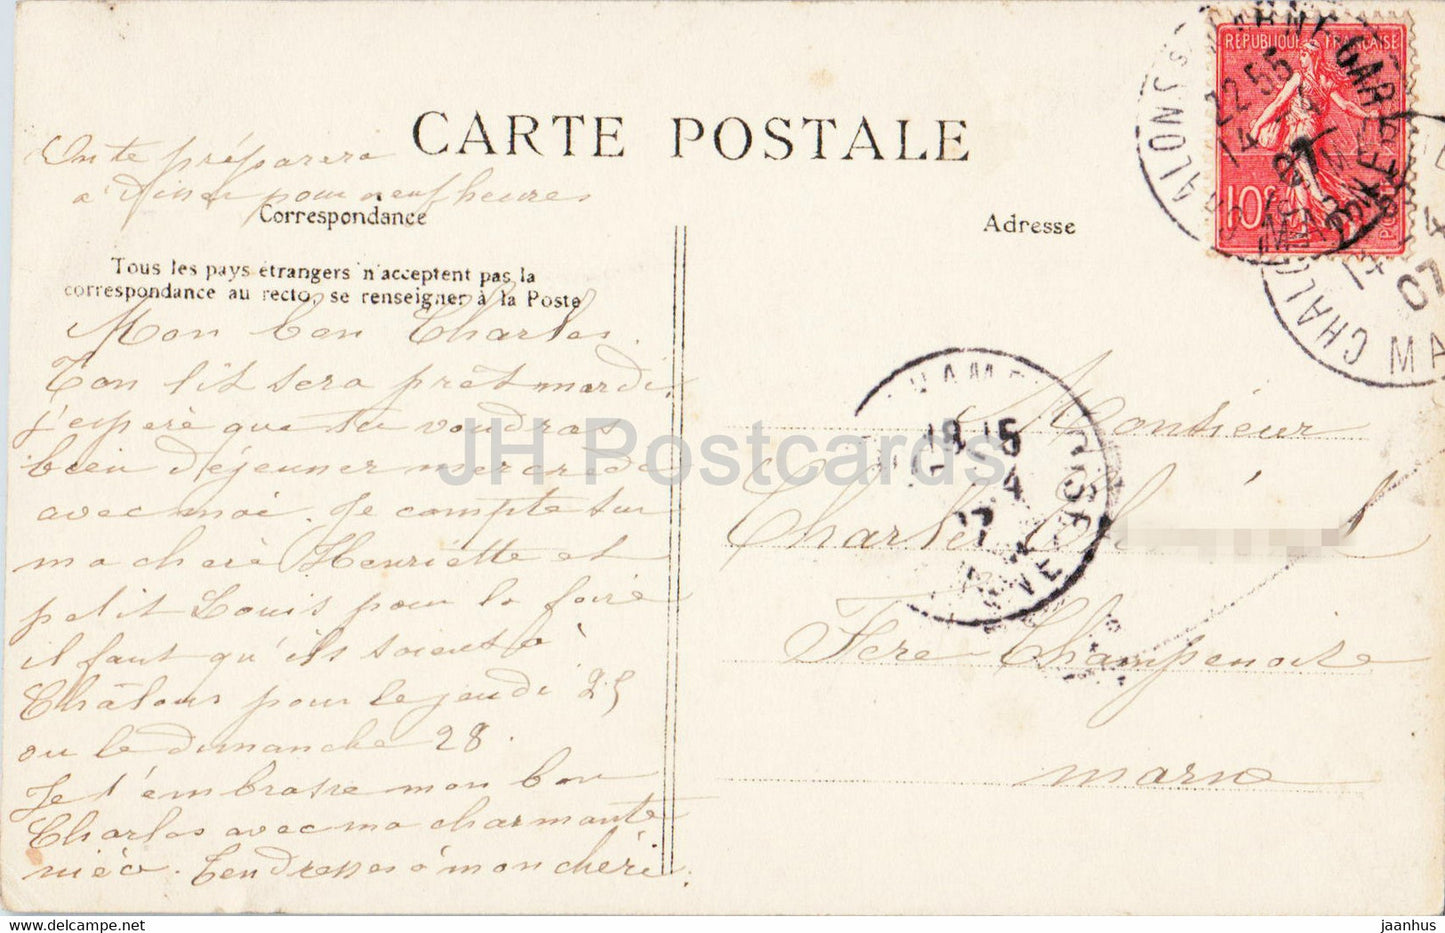 CARTE POSTALE
On te préparera
a diner pour neuf heures
Correspondance
Tous les pays étrangers n'acceptent pas la
correspondance au recto, se renseigner à la Poste
Mon bon Charles.
Ton lit sera prêt mardi.
j'espère que tu voudras
bien déjeuner mercredi
avec moi. Je compte sur
ma chère Henriette et
petit Louis pour la foire
il faut qu'ils soient à
Châlons pour le jeudi 25
ou le dimanche 28.
Je t'embrasse mon bon
Charles avec ma charmante
nièce. Tendresses à mon chéri.
Adresse
Monsieur
Charles
Fère Champenoise
marne
REPUBLIQUE FRANÇAISE
10c
POSTES
12 55
14
07
CHALONS
MA
07
18 15
4
07
JH Postcards
jaanhus